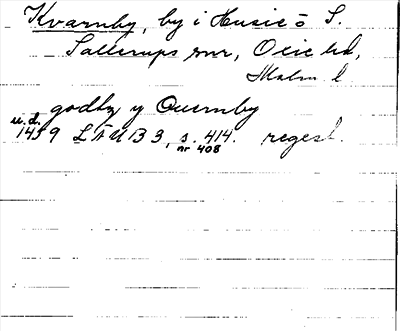 Kvarnby, by i Husie o S.
Sallerups snr, Oxie hd,
Malm. l.
godhz y Quernby
u.d.
1459 LÄUB 3, s. 414. regest.
nr 408